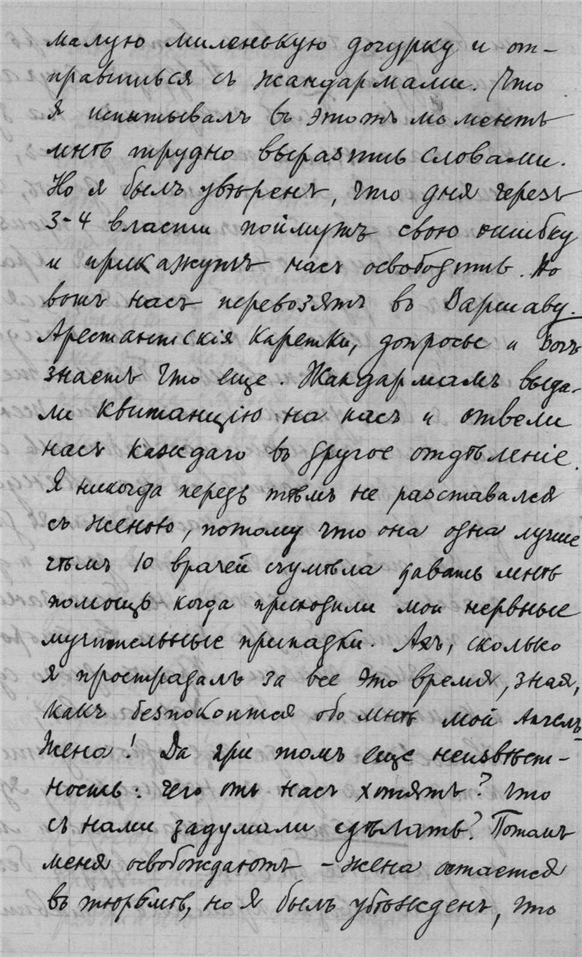 малую миленькую дочурку и от-
правишься съ жандармами. Что
я испытывалъ въ этотъ моментъ
мнѣ трудно выразить словами.
Но я былъ увѣренъ, что дня черезъ
3-4 власти поймутъ свою ошибку
и прикажутъ насъ освободить. Но
вотъ насъ перевозятъ въ Варшаву.
Арестантскія каретки, допросы и Богъ
знаетъ что еще. Жандармамъ выда-
ли квитанцію на насъ и отвели
насъ каждаго въ другое отдѣленіе.
Я никогда передъ тѣмъ не разставался
съ женою, потому что она одна лучше
чѣмъ 10 врачей съумѣла давать мнѣ
помощь когда приходили мои нервные
мучительные припадки. Ахъ, сколько
я прострадалъ за все это время, зная,
какъ безпокоится обо мнѣ мой Ангелъ-
Жена! Да при томъ еще неизвѣст-
ность: чего отъ насъ хотятъ? что
съ нами задумали сдѣлать? Потомъ
меня освобождаютъ – жена остается
въ тюрьмѣ, но я былъ убѣжденъ, что